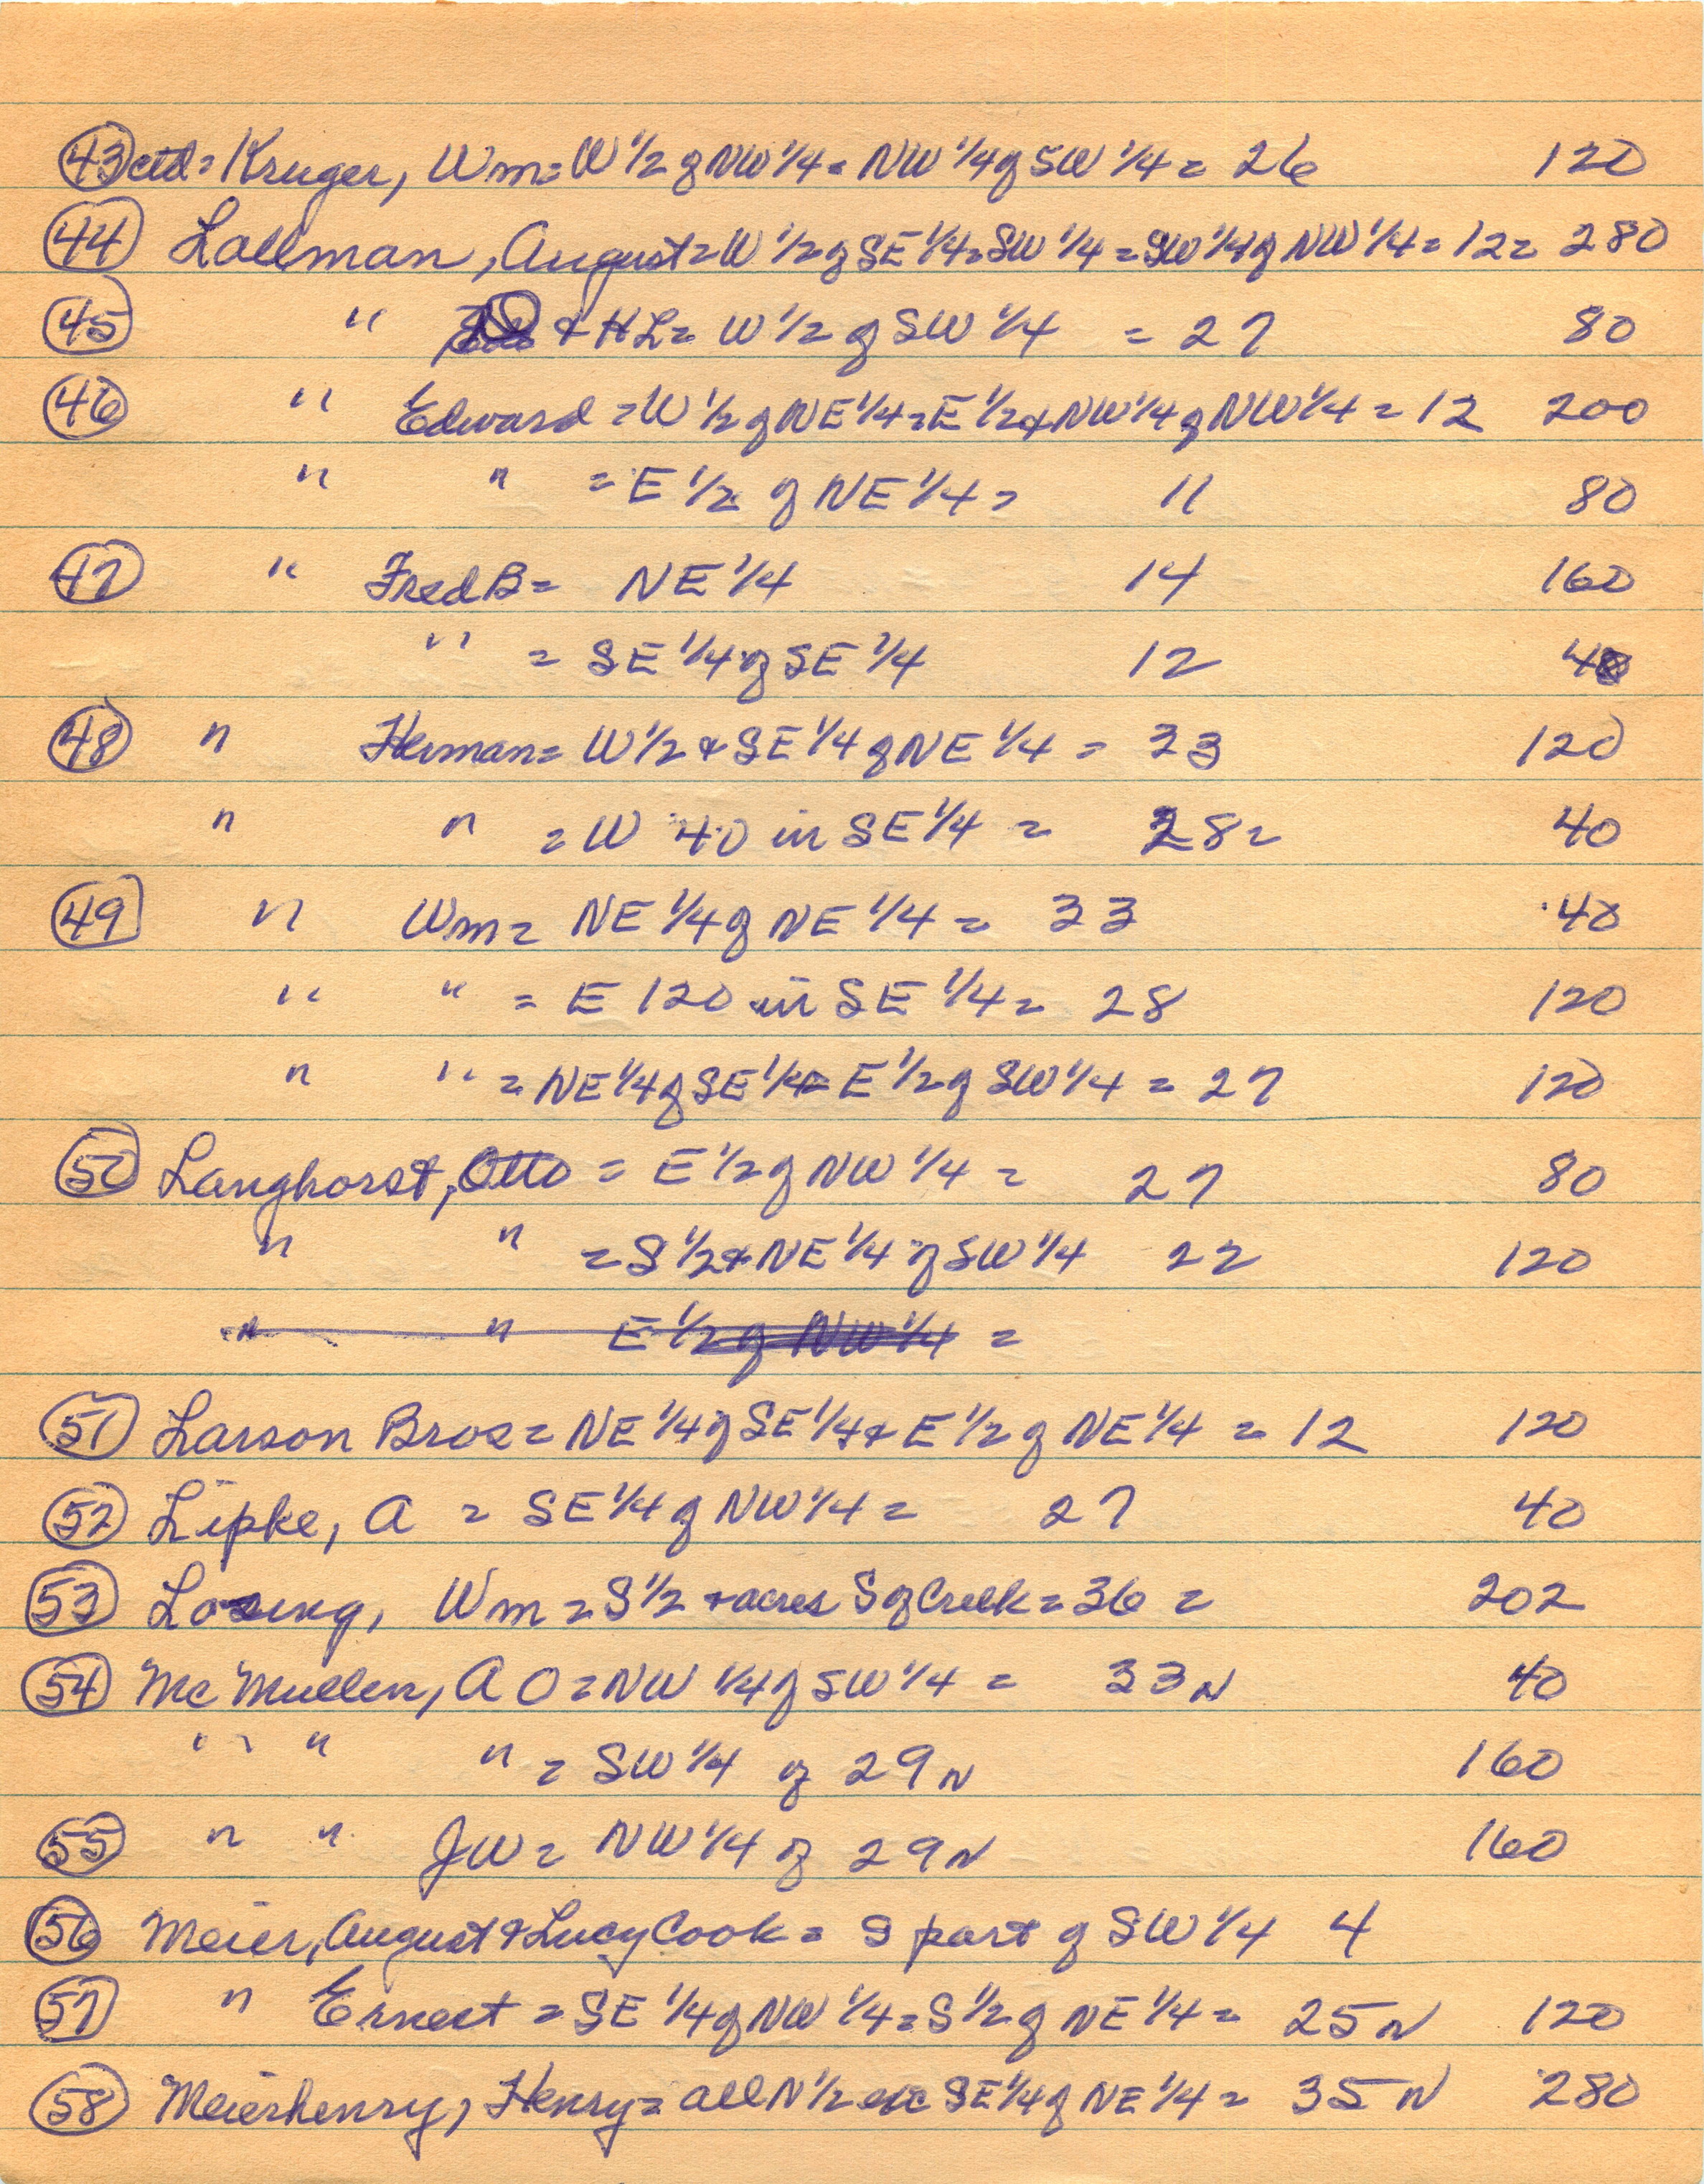 43 ctd = Kruger, Wm = W 1/2 of NW 1/4 = NW 1/4 of SW 1/4 = 26 120
44 Lallman, August = W 1/2 of SE 1/4 = SW 1/4 = SW 1/4 of NW 1/4 = 12 = 280
45 " & HL = W 1/2 of SW 1/4 = 27 80
46 " Edward = W 1/2 of NE 1/4 = E 1/2 & NW 1/4 of NW 1/4 = 12 200
" " = E 1/2 of NE 1/4 = 11 80
47 " Fred B = NE 1/4 14 160
" = SE 1/4 of SE 1/4 12 40
48 " Herman = W 1/2 & SE 1/4 of NE 1/4 = 33 120
" " = W 40 in SE 1/4 = 28 = 40
49 " Wm = NE 1/4 of NE 1/4 = 33 40
" " = E 120 in SE 1/4 = 28 120
" " = NE 1/4 of SE 1/4 = E 1/2 of SW 1/4 = 27 120
50 Langhorst, Otto = E 1/2 of NW 1/4 = 27 80
" " = S 1/2 & NE 1/4 of SW 1/4 22 120
" " E 1/2 of NW 1/4 =
51 Larson Bros = NE 1/4 of SE 1/4 & E 1/2 of NE 1/4 = 12 120
52 Lipke, A = SE 1/4 of NW 1/4 = 27 40
53 Wm = S 1/2 + acres S of Creek = 36 = 202
54 McMullen, A O = NW 1/4 of SW 1/4 = 33 N 40
" " " = SW 1/4 of 29 N 160
55 " " JW = NW 1/4 of 29 N 160
56 Meier, August & Lucy Cook = S part of SW 1/4 4
57 " Ernest = SE 1/4 of NW 1/4 = S 1/2 of NE 1/4 = 25 N 120
58 Meierhenry, Henry = all N 1/2 exc SE 1/4 of NE 1/4 = 35 N 280